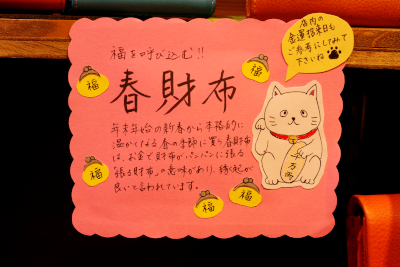 福を呼び込む!!
春財布
年末年始の新春から本格的に
温かくなる春の季節に買う春財布
は、お金で財布がパンパンに張る
「張る財布」の意味があり、縁起が
良いと言われています。
店内の
金運指来日も
ご参考にしてみて
下さいね
福
福
福
福
福
福
千万両